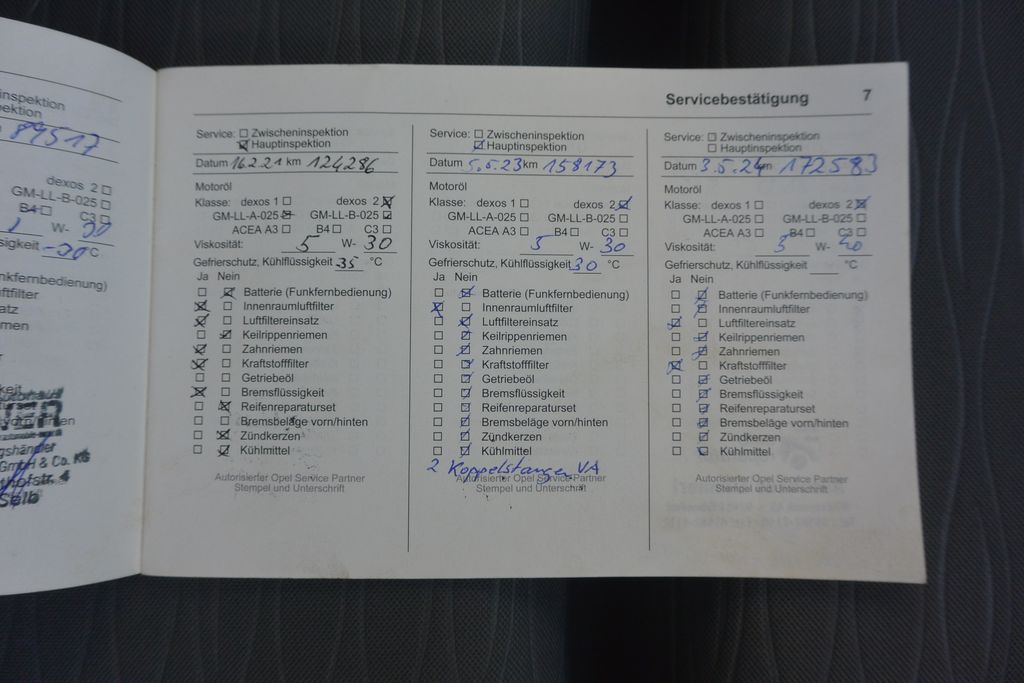 inspektion
ektion
89517
dexos 2 ☐
GM-LL-B-025 ☐
B4 ☐ C3 ☐
W- 30
sigkeit -20 °C
nkfernbedienung)
ftfilter
atz
men
keit
GmbH & Co. KG
hofstr. 4
Selb
Servicebestätigung 7
Service: ☐ Zwischeninspektion
☒ Hauptinspektion
Datum 16.2.21 km 124286
Motoröl
Klasse: dexos 1 ☐ dexos 2 ☒
GM-LL-A-025 ☒ GM-LL-B-025 ☑
ACEA A3 ☐ B4 ☐ C3 ☐
Viskosität: 5 W- 30
Gefrierschutz, Kühlflüssigkeit 35 °C
Ja Nein
☐ ☒ Batterie (Funkfernbedienung)
☒ ☐ Innenraumluftfilter
☒ ☐ Luftfiltereinsatz
☐ ☒ Keilrippenriemen
☒ ☐ Zahnriemen
☒ ☐ Kraftstofffilter
☐ ☐ Getriebeöl
☒ ☐ Bremsflüssigkeit
☐ ☒ Reifenreparaturset
☐ ☐ Bremsbeläge vorn/hinten
☐ ☒ Zündkerzen
☐ ☑ Kühlmittel
Autorisierter Opel Service Partner
Stempel und Unterschrift
Service: ☐ Zwischeninspektion
☑ Hauptinspektion
Datum 5.5.23 km 158173
Motoröl
Klasse: dexos 1 ☐ dexos 2 ☑
GM-LL-A-025 ☐ GM-LL-B-025 ☐
ACEA A3 ☐ B4 ☐ C3 ☐
Viskosität: 5 W- 30
Gefrierschutz, Kühlflüssigkeit 30 °C
Ja Nein
☐ ☑ Batterie (Funkfernbedienung)
☒ ☐ Innenraumluftfilter
☐ ☑ Luftfiltereinsatz
☐ ☑ Keilrippenriemen
☐ ☑ Zahnriemen
☐ ☑ Kraftstofffilter
☐ ☑ Getriebeöl
☐ ☑ Bremsflüssigkeit
☐ ☑ Reifenreparaturset
☐ ☑ Bremsbeläge vorn/hinten
☐ ☑ Zündkerzen
☐ ☑ Kühlmittel
2 Koppelstangen VA
Autorisierter Opel Service Partner
Stempel und Unterschrift
Service: ☐ Zwischeninspektion
☐ Hauptinspektion
Datum 3.5.24 km 172583
Motoröl
Klasse: dexos 1 ☐ dexos 2 ☒
GM-LL-A-025 ☐ GM-LL-B-025 ☐
ACEA A3 ☐ B4 ☐ C3 ☐
Viskosität: 5 W- 40
Gefrierschutz, Kühlflüssigkeit °C
Ja Nein
☐ ☑ Batterie (Funkfernbedienung)
☐ ☑ Innenraumluftfilter
☑ ☐ Luftfiltereinsatz
☐ ☑ Keilrippenriemen
☐ ☑ Zahnriemen
☒ ☐ Kraftstofffilter
☐ ☑ Getriebeöl
☐ ☑ Bremsflüssigkeit
☐ ☑ Reifenreparaturset
☐ ☑ Bremsbeläge vorn/hinten
☐ ☑ Zündkerzen
☐ ☑ Kühlmittel
Autorisierter Opel Service Partner
Stempel und Unterschrift